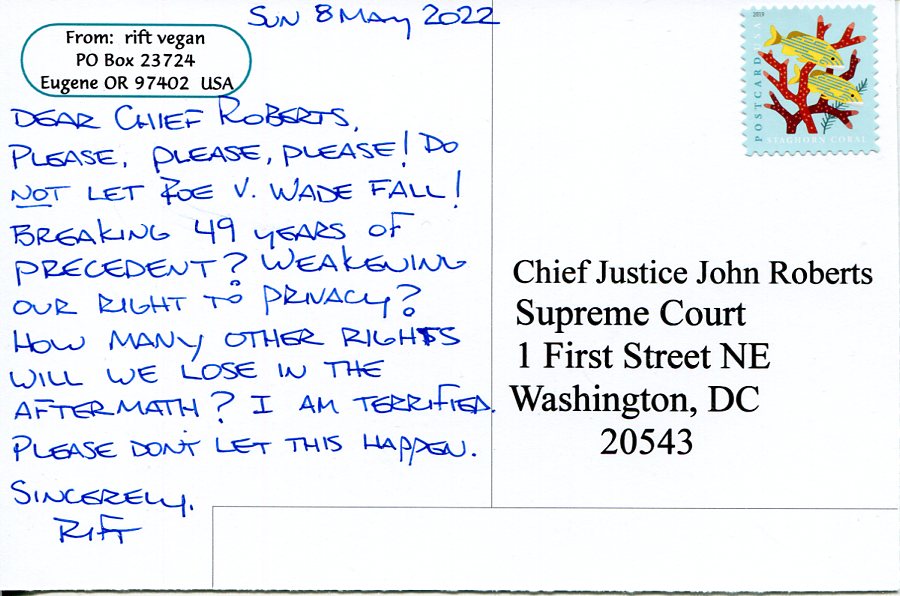 SUN 8 MAY 2022
From: rift vegan
PO Box 23724
Eugene OR 97402 USA
DEAR CHIEF ROBERTS,
PLEASE, PLEASE, PLEASE! DO
NOT LET ROE V. WADE FALL!
BREAKING 49 YEARS OF
PRECEDENT? WEAKENING
OUR RIGHT TO PRIVACY?
HOW MANY OTHER RIGHTS
WILL WE LOSE IN THE
AFTERMATH? I AM TERRIFIED.
PLEASE DON'T LET THIS HAPPEN.
SINCERELY,
RIFT
2019
POSTCARD USA
STAGHORN CORAL
Chief Justice John Roberts
Supreme Court
1 First Street NE
Washington, DC
20543